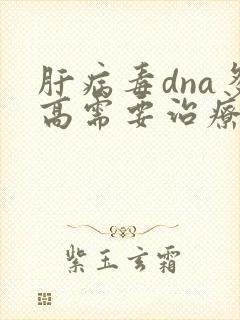 肝病毒dna
高需要治疗
紫玉玄霜